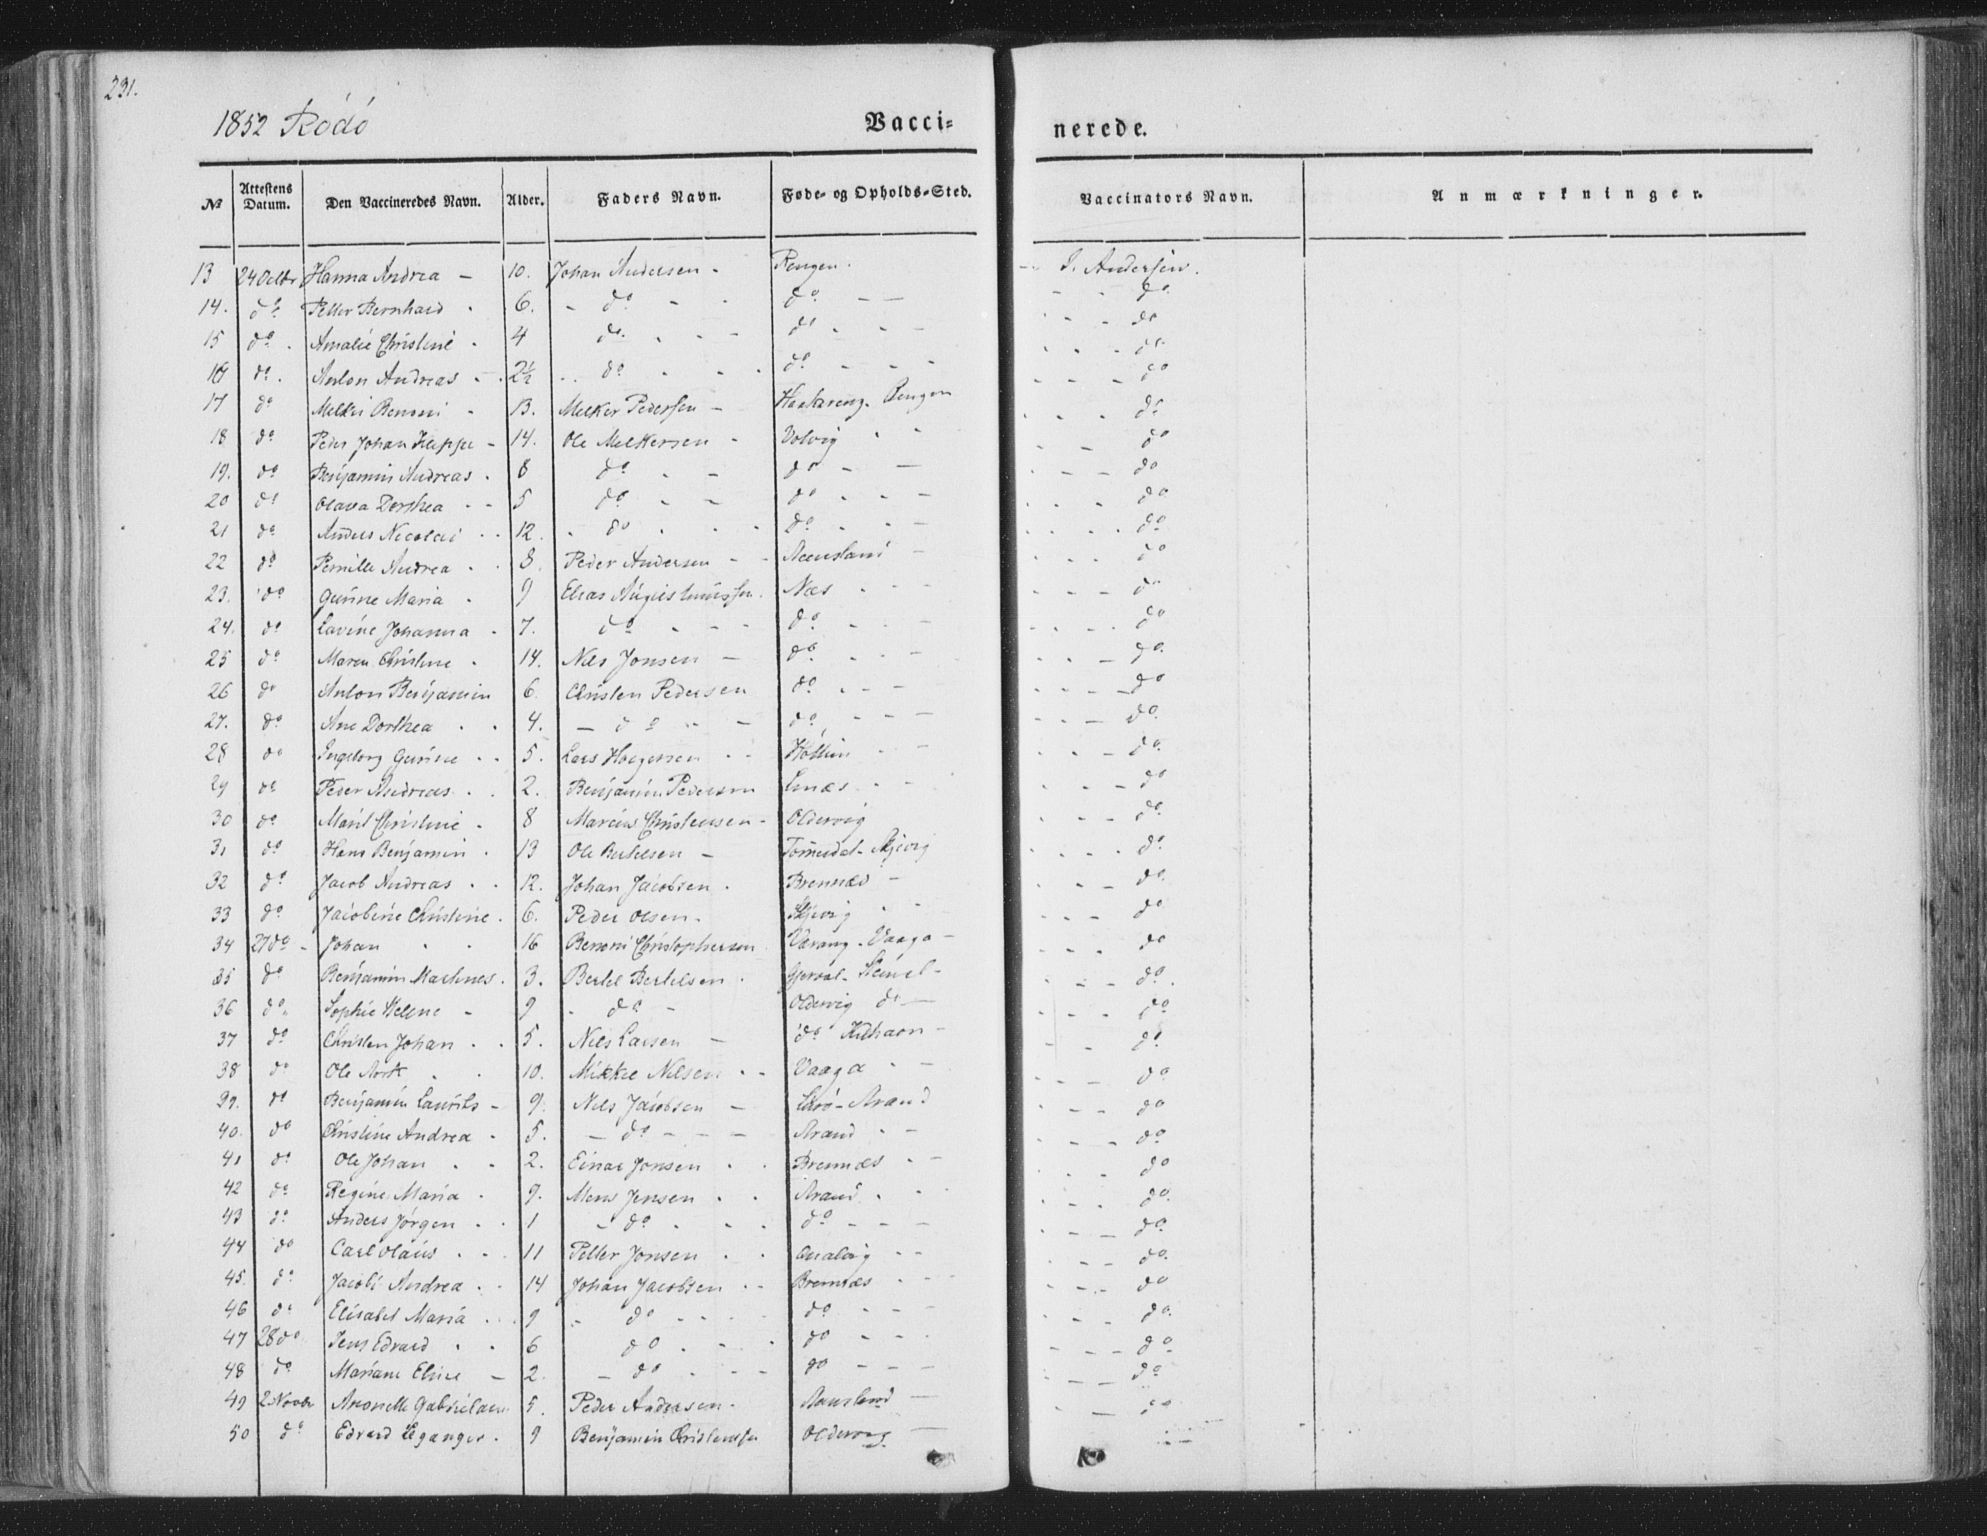 231.
1852 Rödö Vacci= nerede.
No Attestens Datum. Den Vaccineredes Navn. Alder. Faders Navn. Føde- og Opholds-Sted. Vaccinators Navn. Anmærkninger.
13 24 Octbr Hanna Andrea - 10. Johan Andersen - Rengen. - J. Andersen.
14. do Petter Bernhard - 6. - do - - do - - do
15 do. Amalie Christine - 4 do. - - do - - do
16 do. Anton Andreas - 2½ do - - do - - do
17 do Melkei Benoni - 13. Melker Pedersen - Rengen do
18 do Peder Johan - 14. Ole Melkersen - Volvig - - do
19. do Benjamin Andreas - 8 do - - do - - do
20 do Olava Dorthea - - 5 do - - do - - do
21 do Anders Nicolai - - 12. - do - - do - - do
22 do Pernille Andrea - - 8. Peder Andersen - - do
23. do Gurine Maria - 9 Elias Næs - - do
24. do Lavine Johanna - 7. do - - do - - do
25 do Maren Christine - 14. Nils Jonsen - do - - do
26 do Anton Benjamin 6. Christen Pedersen do - - do
27. do Ane Dorthea - - 4. - do - - do - - do
28 do Ingeborg Gurine - - 5. Lars - - do
29 do Peder Andreas - - 2. Benjamin Pedersen - - do
30 do Marit Christine - 8 Marcus Christensen - Oldervig do
31 do Hans Benjamin - 13 Ole Bertelsen - do
32 do Jacob Andreas - - 12. Johan Jacobsen - Brennæs - do
33 do Jacobine Christine. 6. Peder Olsen - Skjevig - do
34 27 do - Johan - - 16 Benoni Christophersen Varang - Vaaga - do
35 do Benjamin Martinus. 3. Bertel Bertelsen - do.
36 do Sophie Helene - 9 - do - Oldervig do - do
37 do Christen Johan - - 5. Nils Larsen - do do
38 do Ole - - 10. Mikkel Nilsen - - Vaaga - - do
39. do Benjamin Laurits - 9. Nils Jacobsen - do
40. do Christine Andrea - 5. - do - - - - do
41 do Ole Johan - - 2. Einar Jonsen - - Brennæs - - do
42 do Regine Maria - 9. Mons Jensen - - do
43 do Anders Jörgen - - 1 - do - - do - - do
44 do Carl Olaus - - 11 Petter Jonsen - - - - do
45. do Jacobi Andrea - - 14 Johan Jacobsen - - Brennæs - - do
46 do Elisabet Maria - - 9 - do - - do - - do
47 28 do Jens Edvard - - 6 do - - do - - do
48 do Mariane Elise - 2. - do - - do - - do
49 2 Novbr 5. Peder Andersen - - do
50 do Edvard - 9 Benjamin Christensen Oldervig -